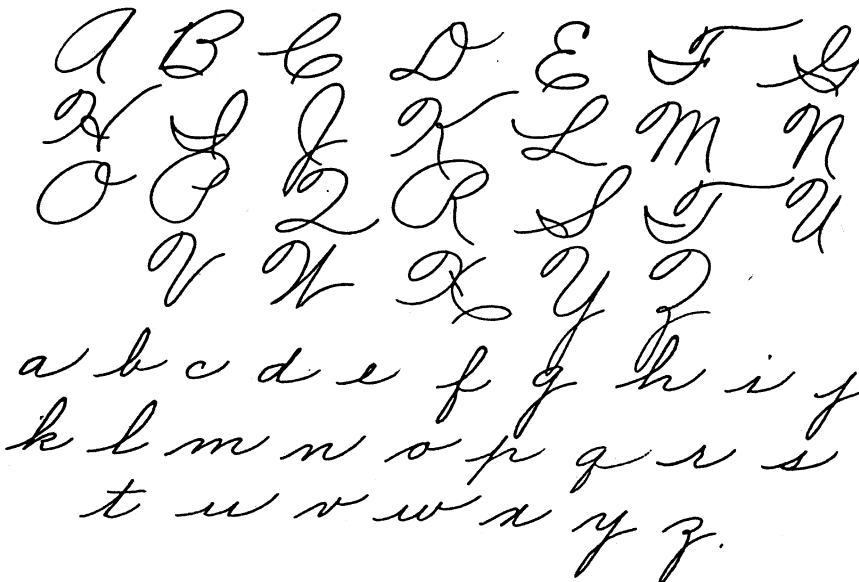 A B C D E F G
H I J K L M N
O P Q R S T U
V W X Y Z
a b c d e f g h i j
k l m n o p q r s
t u v w x y z.